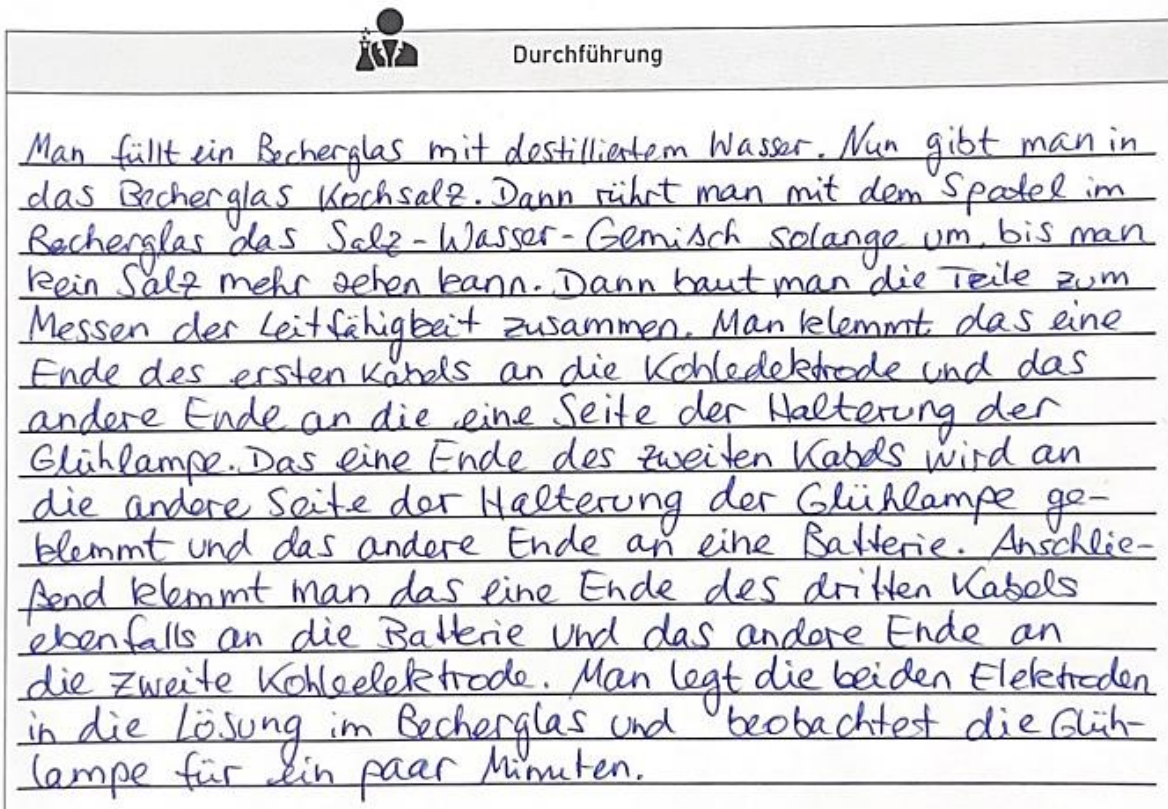 Durchführung
Man füllt ein Becherglas mit destilliertem Wasser. Nun gibt man in
das Becherglas Kochsalz. Dann rührt man mit dem Spatel im
Becherglas das Salz-Wasser-Gemisch solange um, bis man
kein Salz mehr sehen kann. Dann baut man die Teile zum
Messen der Leitfähigkeit zusammen. Man klemmt das eine
Ende des ersten Kabels an die Kohleelektrode und das
andere Ende an die eine Seite der Halterung der
Glühlampe. Das eine Ende des zweiten Kabels wird an
die andere Seite der Halterung der Glühlampe ge-
klemmt und das andere Ende an eine Batterie. Anschlie-
ßend klemmt man das eine Ende des dritten Kabels
ebenfalls an die Batterie und das andere Ende an
die zweite Kohleelektrode. Man legt die beiden Elektroden
in die Lösung im Becherglas und beobachtet die Glüh-
lampe für ein paar Minuten.